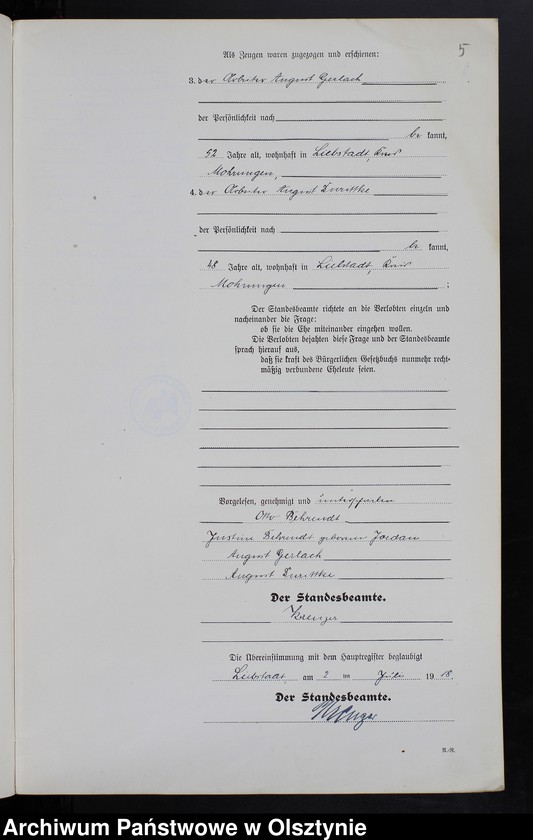 5
Als Zeugen waren zugezogen und erschienen:
3. der Arbeiter August Gerlach
der Persönlichkeit nach
be kannt,
52 Jahre alt, wohnhaft in Liebstadt, Kreis
Mohrungen,
4. der Arbeiter August
der Persönlichkeit nach
be kannt,
48 Jahre alt, wohnhaft in Liebstadt, Kreis
Mohrungen ;
Der Standesbeamte richtete an die Verlobten einzeln und
nacheinander die Frage:
ob sie die Ehe miteinander eingehen wollen.
Die Verlobten bejahten diese Frage und der Standesbeamte
sprach hierauf aus,
daß sie kraft des Bürgerlichen Gesetzbuchs nunmehr recht-
mäßig verbundene Eheleute seien.
Vorgelesen, genehmigt und unterschrieben
Otto Behrendt
Justine Behrendt geborene Jordan
August Gerlach
August
Der Standesbeamte.
Die Übereinstimmung mit dem Hauptregister beglaubigt
Liebstadt, am 2 ten Juli 1918.
Der Standesbeamte.
Archiwum Państwowe w Olsztynie